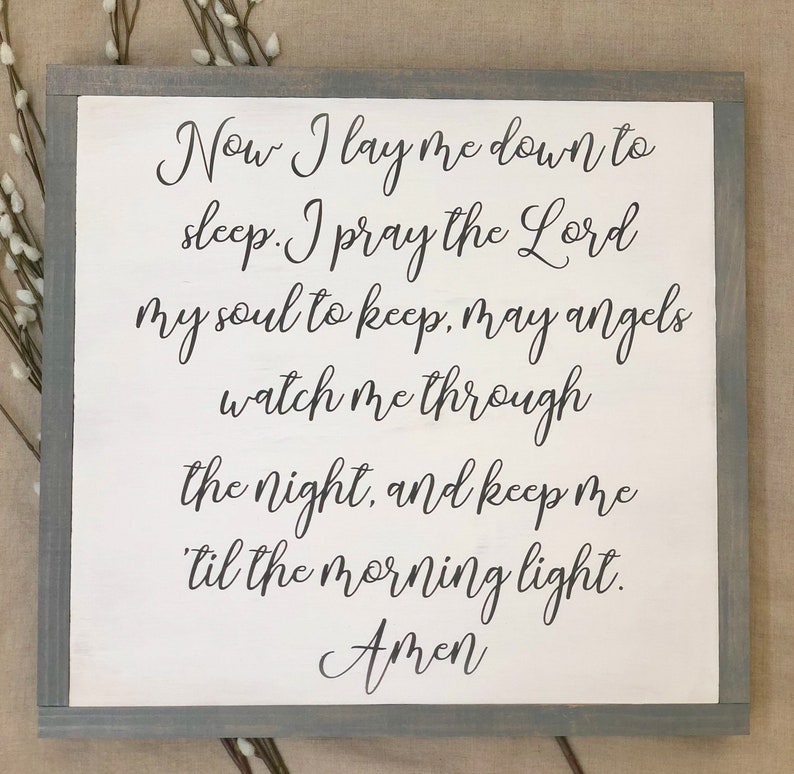 Now I lay me down to
sleep. I pray the Lord
my soul to keep, may angels
watch me through
the night, and keep me
'til the morning light.
Amen